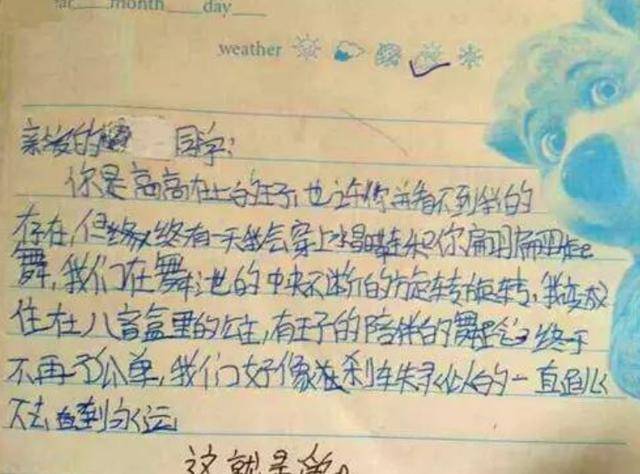 month day
weather
亲爱的 同学:
你是高高在上的王子,也许你并看不到我的
存在,但终有一天我会穿上水晶鞋和你翩翩起
舞,我们在舞池的中央不断的旋转旋转,我变成
住在八音盒里的公主,有王子的陪伴的舞 终于
不再孤单,我们好像 刹车失灵似的一直跳
下去,直到永远
这就是